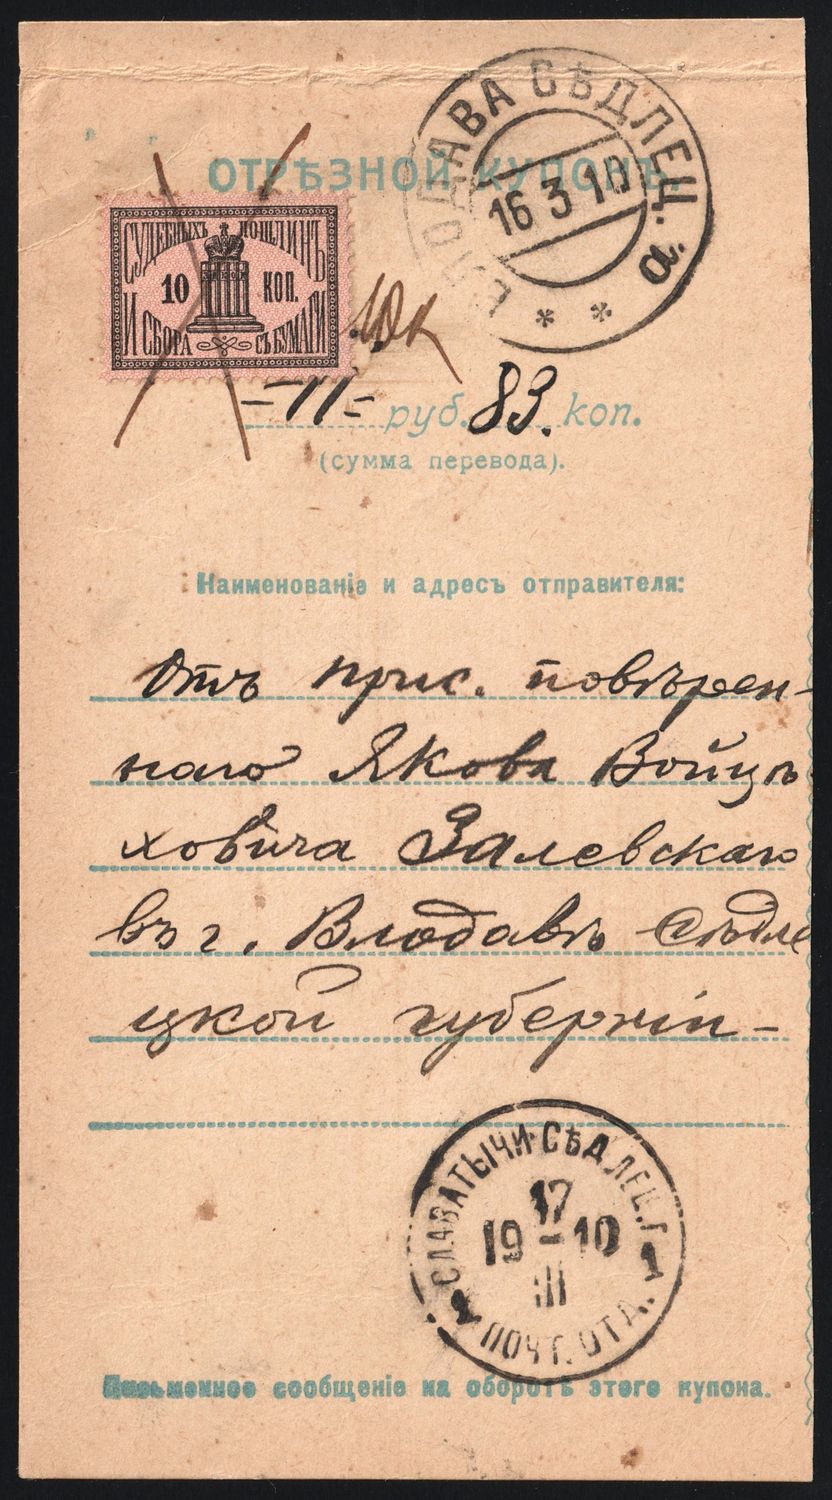 ВЛОДАВА СѢДЛЕЦ. а.
16 3 10
* *
ОТРѢЗНОЙ КУПОНЪ.
СУДЕБНЫХЪ ПОШЛИНЪ
10 КОП.
И СБОРА СЪ БУМАГИ
10к
=11= руб. 83. коп.
(сумма перевода).
Наименованіе и адресъ отправителя:
Отъ прис. повѣрен-
наго Якова Войцѣ
ховича Залевскаго
въ г. Влодавѣ Сѣдле
цкой губерніи -
СЛАВАТЫЧИ СѢДЛЕЦ. Г.
17
19-10
III
1 1
ПОЧТ. ОТД.
Письменное сообщеніе на оборотѣ этого купона.